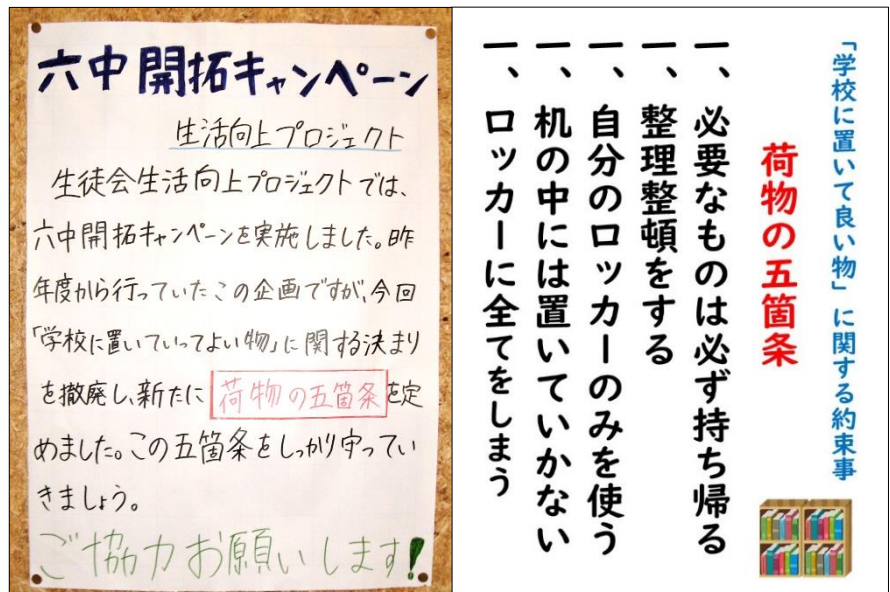 六中開拓キャンペーン
生活向上プロジェクト
生徒会生活向上プロジェクトでは、
六中開拓キャンペーンを実施しました。昨
年度から行っていたこの企画ですが、今回
「学校に置いていってよい物」に関する決まり
を撤廃し、新たに荷物の五箇条を定
めました。この五箇条をしっかり守ってい
きましょう。
ご協力お願いします!
「学校に置いて良い物」に関する約束事
荷物の五箇条
一、必要なものは必ず持ち帰る
一、整理整頓をする
一、自分のロッカーのみを使う
一、机の中には置いていかない
一、ロッカーに全てをしまう